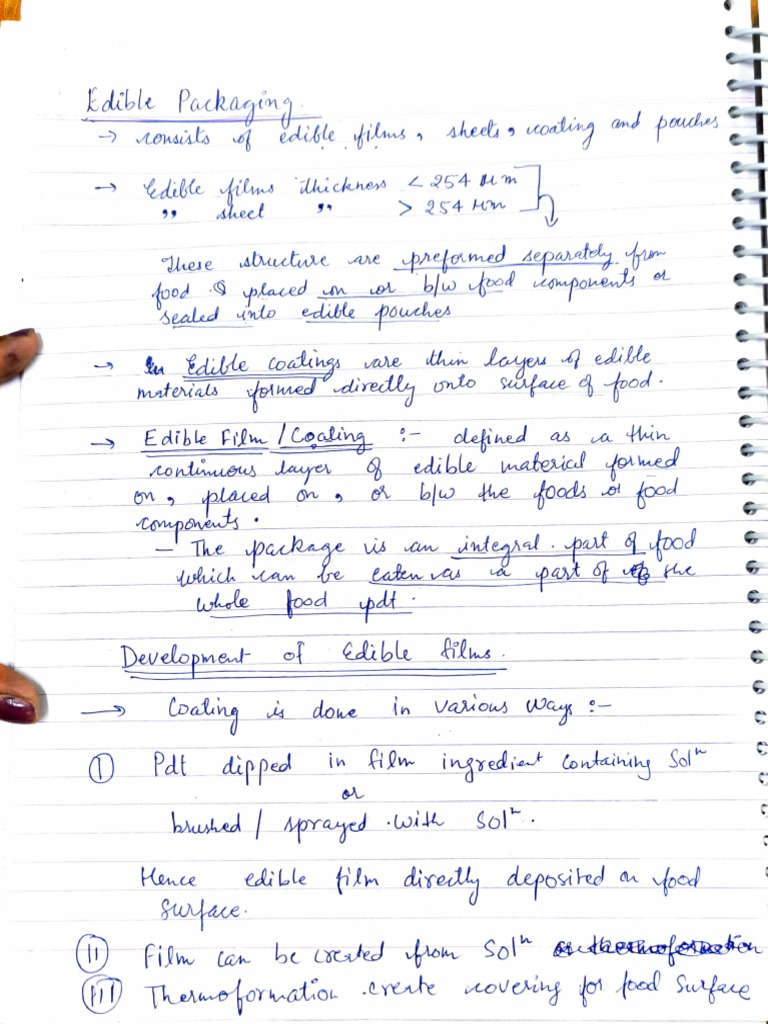 Edible Packaging.
→ consists of edible films, sheets, coating and pouches
→ Edible films thickness < 254 µm
" sheet " > 254 µm
These structure are preformed separately from
food & placed on or b/w food components or
sealed into edible pouches
→ Edible coatings are thin layers of edible
materials formed directly onto surface of food.
→ Edible Film / Coating :- defined as a thin
continuous layer of edible material formed
on, placed on, or b/w the foods or food
components.
- The package is an integral part of food
which can be eaten as a part of the
whole food pdt.
Development of Edible films.
→ Coating is done in various ways :-
I Pdt dipped in film ingredient containing Solⁿ
or
brushed / sprayed with Solⁿ.
Hence edible film directly deposited on food
surface.
II Film can be created from Solⁿ
III Thermoformation create covering for food Surface